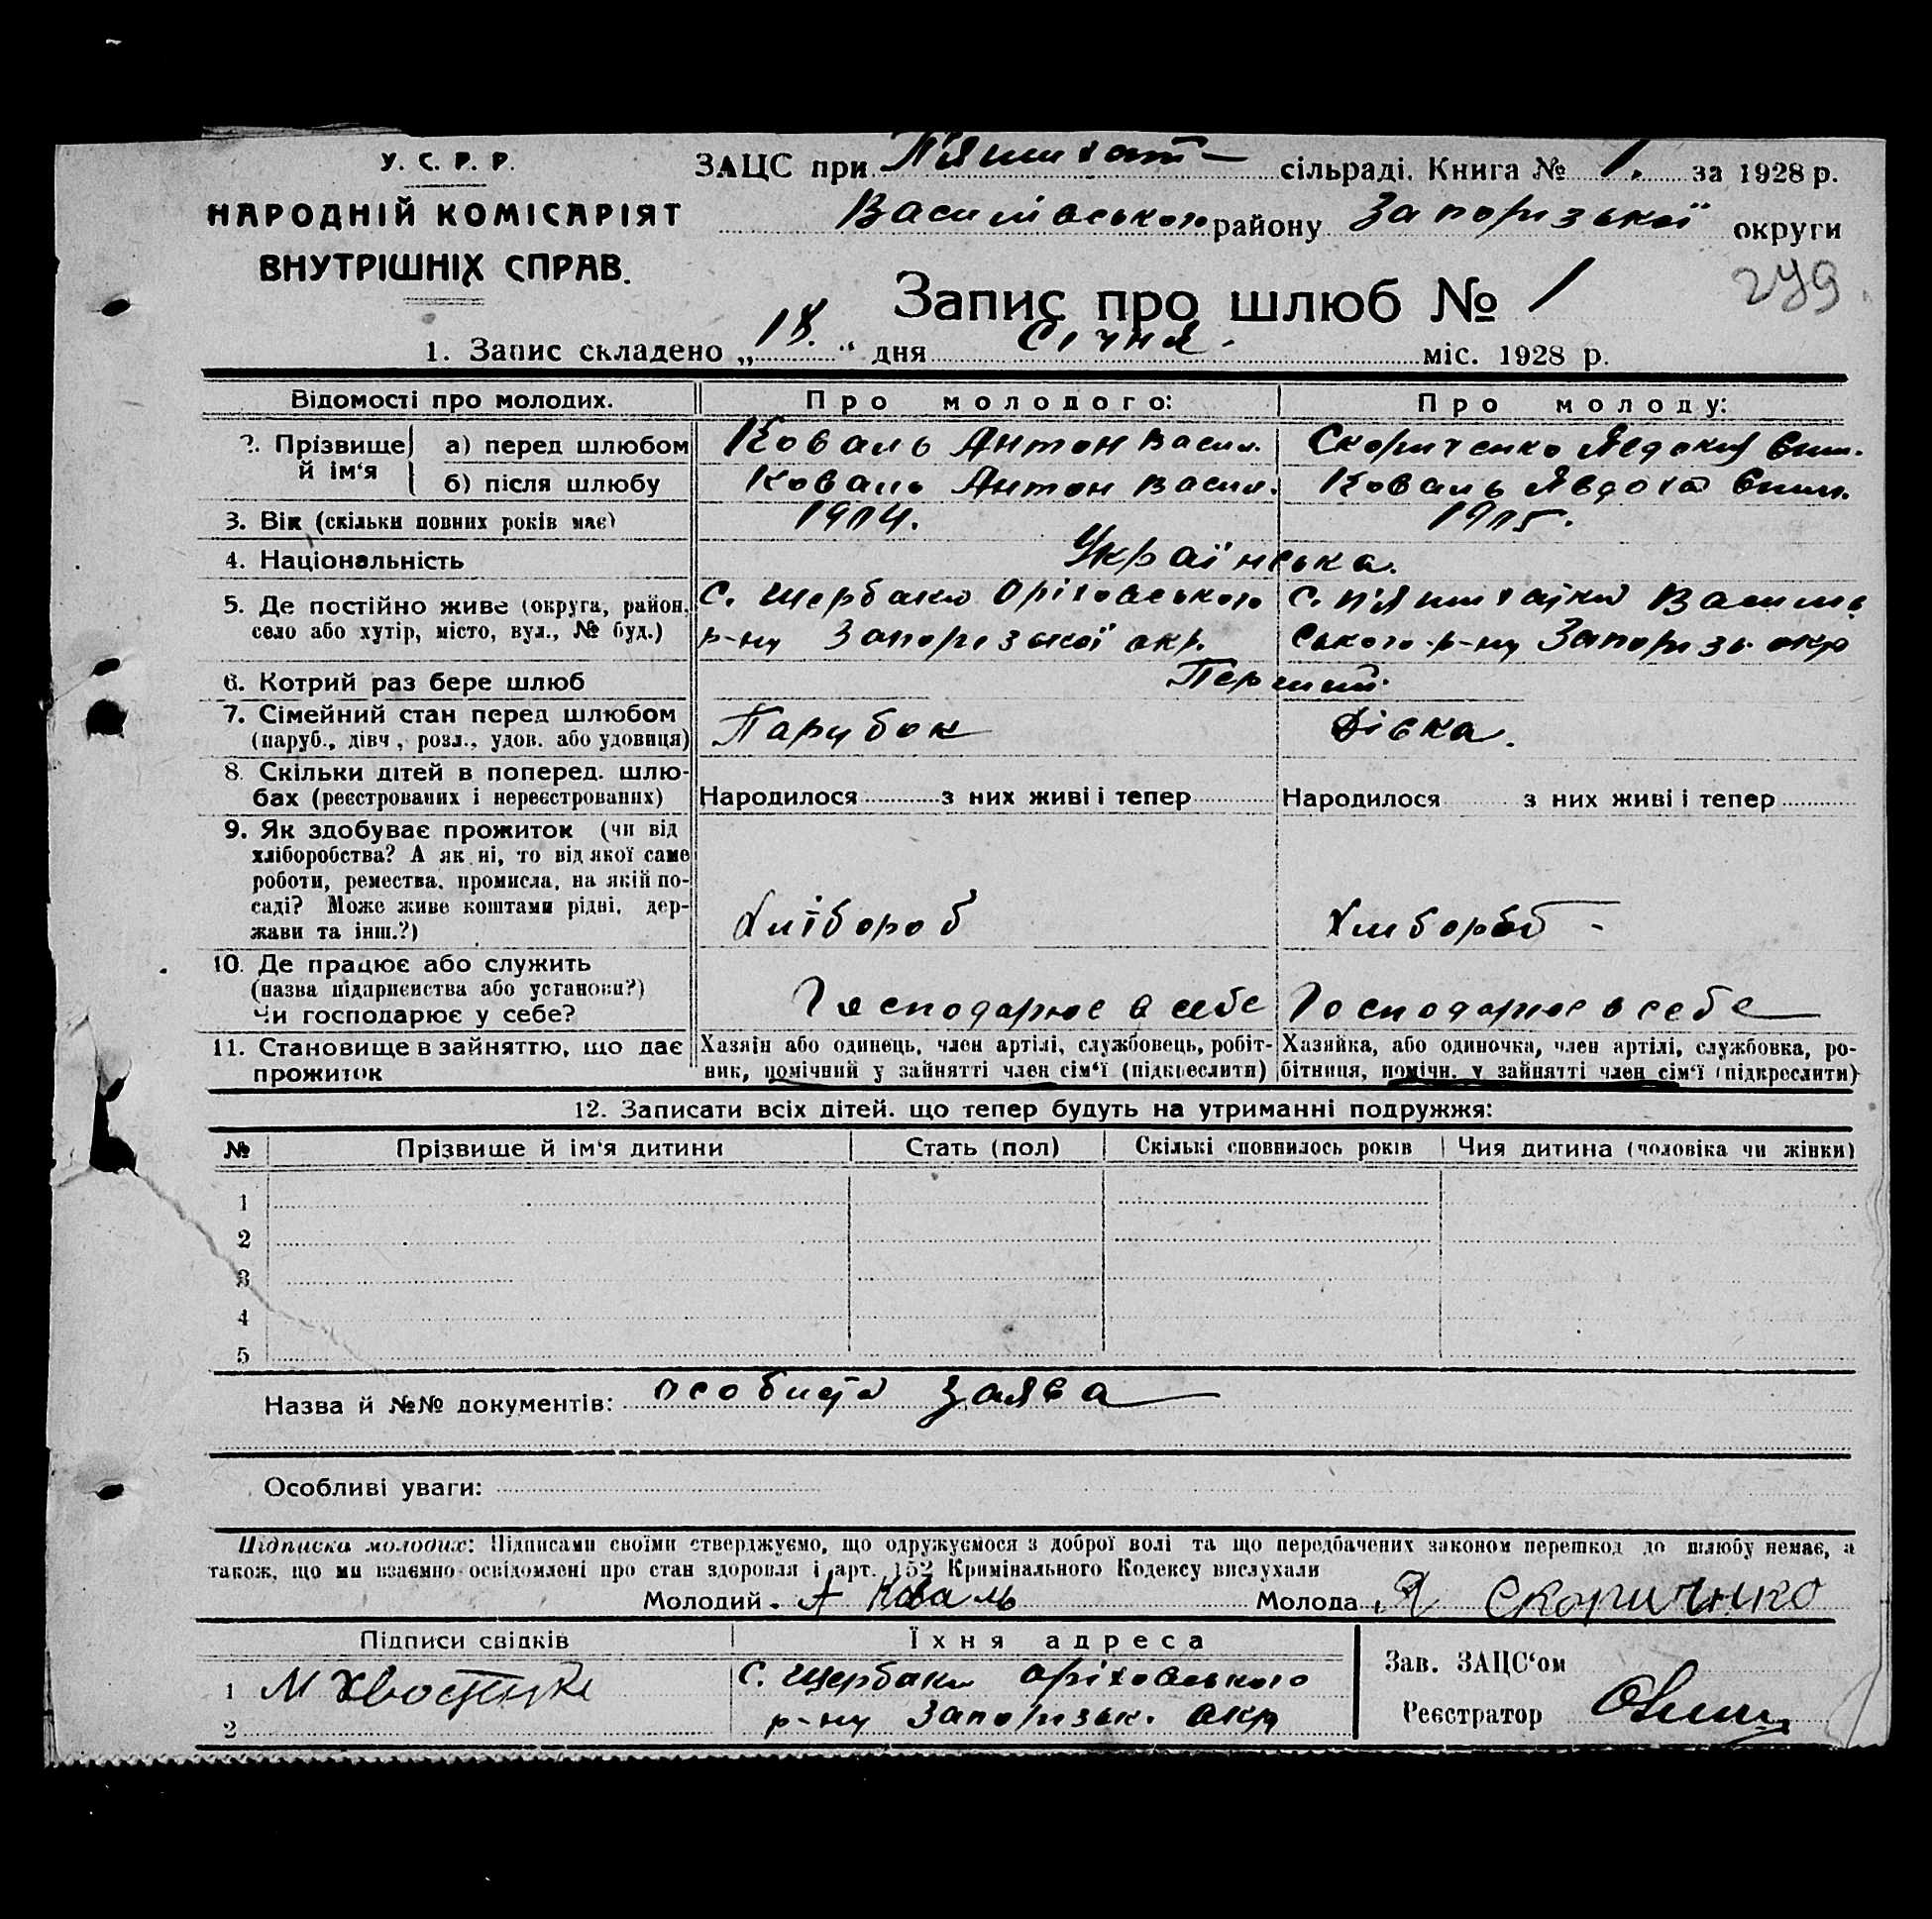 У. С. Р. Р.
НАРОДНІЙ КОМІСАРІЯТ
ВНУТРІШНІХ СПРАВ.
ЗАЦС при П'ятихат- сільраді. Книга № 1. за 1928 р.
Василівського району Запорізької округи
279
Запис про шлюб № 1
1. Запис складено „18.“ дня Січня. міс. 1928 р.
Відомості про молодих. Про молодого: Про молоду:
2. Прізвище й ім‘я
а) перед шлюбом Коваль Антон Васил. Скориченко Явдоки
б) після шлюбу Коваль Антон Васил. Коваль Явдоха
3. Вік (скільки повних років має) 1904. 1905.
4. Національність Українська.
5. Де постійно живе (округа, район, С. Щербаки Оріховського С. П'ятихатки Василів
село або хутір, місто, вул., № буд.) р-ну Запорізької окр. ського р-ну Запорізь. окр
6. Котрий раз бере шлюб Перший.
7. Сімейний стан перед шлюбом Парубок Дівка.
(паруб., дівч., розл., удов. або удовиця)
8. Скільки дітей в поперед. шлю-
бах (реєстрованих і нереєстрованих) Народилося з них живі і тепер Народилося з них живі і тепер
9. Як здобуває прожиток (чи від
хліборобства? А як ні, то від якої саме
роботи, ремества, промисла, на якій по-
саді? Може живе коштами рідні, дер-
жави та інш.?) Хлібороб Хлибороб -
10. Де працює або служить
(назва підприємства або установи?)
Чи господарює у себе? Господарює в себе Господарює в себе
11. Становище в зайняттю, що дає Хазяїн або одинець, член артілі, службовець, робіт- Хазяйка, або одиночка, член артілі, службовка, ро-
прожиток ник, помічний у зайнятті член сім‘ї (підкреслити) бітниця, помічн. у зайнятті член сім‘ї (підкреслити)
12. Записати всіх дітей. що тепер будуть на утриманні подружжя:
№ Прізвише й ім‘я дитини Стать (пол) Скількі сповнилось років Чия дитина (чоловіка чи жінки)
1
2
3
4
5
Назва й №№ документів: особиста заява
Особливі уваги:
Підписка молодих: Підписами своїми стверджуємо, що одружуємося з доброї волі та що передбачених законом перешкод до шлюбу немає, а
також, що ми взаємно освідомлені про стан здоровля і арт. 152 Кримінального Кодексу вислухали
Молодий. А Коваль Молода Я Скориченко
Підписи свідків Їхня адреса
1 М С. Щербаки Оріховського
2 р-ну Запорізьк. окр
Зав. ЗАЦС‘ом
Реєстратор